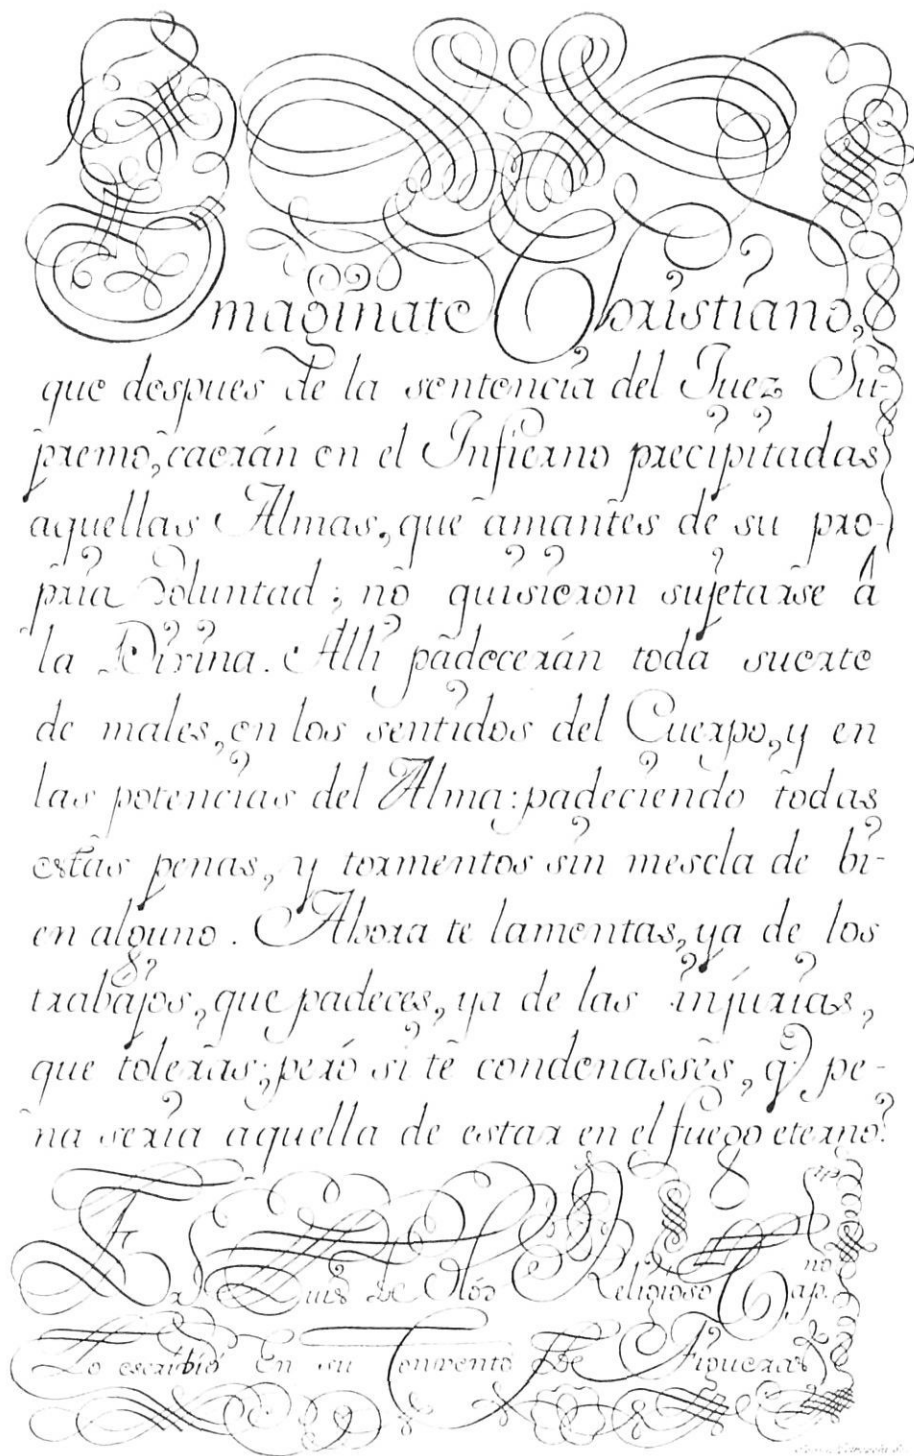 Imaginate Christiano,
que despues de la sentencia del Juez Su-
premo, caerán en el Infierno precipitadas
aquellas Almas, que amantes de su pro-
pria Voluntad; no quisieron sujetarse â
la Divina. Alli padecerán toda suerte
de males, en los sentidos del Cuerpo, y en
las potencias del Alma: padeciendo todas
estas penas, y tormentos sin mescla de bi-
en alguno. Ahora te lamentas, ya de los
trabajos, que padeces, ya de las injurias,
que toleras; peró si te condenasses, q pe-
na seria aquella de estar en el fuego eterno?
Fr. Luis de Olót Religioso Cap.no
Lo escribió En su Convento De Figueras